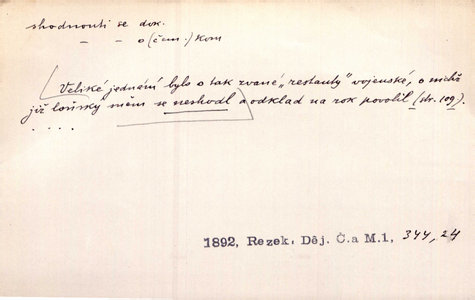 shodnouti se dok.
– – o (čem.) kom
Veliké jednání bylo o tak zvané „restanty" vojenské, o nichž
již loňský sněm se neshodl a odklad na rok povolil (str. 109).
. . . .
1892, Rezek: Děj. Č. a M. 1, 344, 24